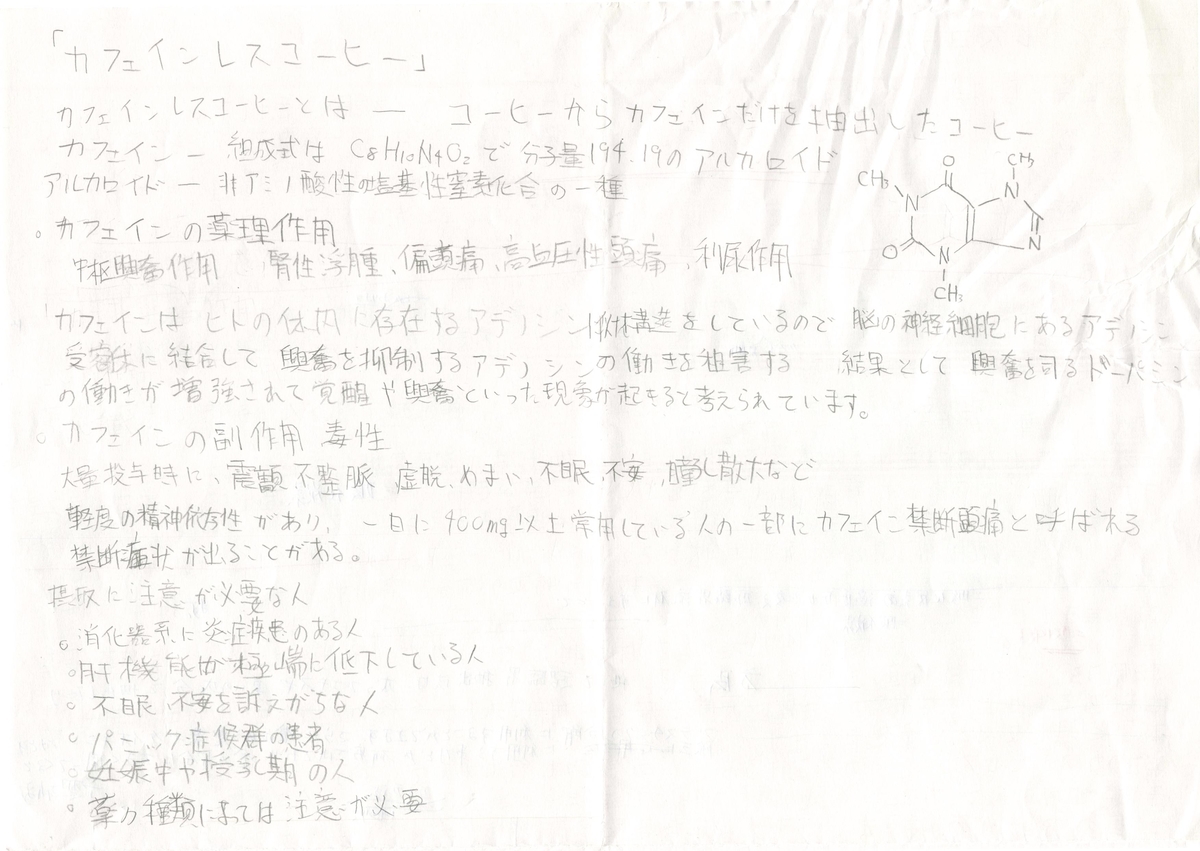 「カフェインレスコーヒー」
カフェインレスコーヒーとは ― コーヒーからカフェインだけを抽出したコーヒー
カフェイン ― 組成式は C8H10N4O2 で 分子量194.19のアルカロイド
アルカロイド ― 非アミノ酸性の塩基性窒素化合の一種
O
CH3
CH3
N
N
O
N
N
CH3
。カフェインの薬理作用
中枢興奮作用 腎性浮腫、偏頭痛、高血圧性頭痛、利尿作用
カフェインは ヒトの体内に存在するアデノシン 構造をしているので 脳の神経細胞にあるアデノシン
受容体に結合して 興奮を抑制するアデノシンの働きを阻害する 結果として 興奮を司るドーパミン
の働きが増強されて覚醒や興奮といった現象が起きると考えられています。
。カフェインの副作用 毒性
大量投与時に、震顫、不整脈、虚脱、めまい、不眠、不安、瞳孔散大など
軽度の精神依存性があり、一日に400mg以上常用している人の一部にカフェイン禁断頭痛と呼ばれる
禁断症状が出ることがある。
摂取に注意が必要な人
。消化器系に炎症疾患のある人
。肝機能が極端に低下している人
。不眠、不安を訴えがちな人
。パニック症候群の患者
。妊娠中や授乳期の人
。薬の種類によっては注意が必要